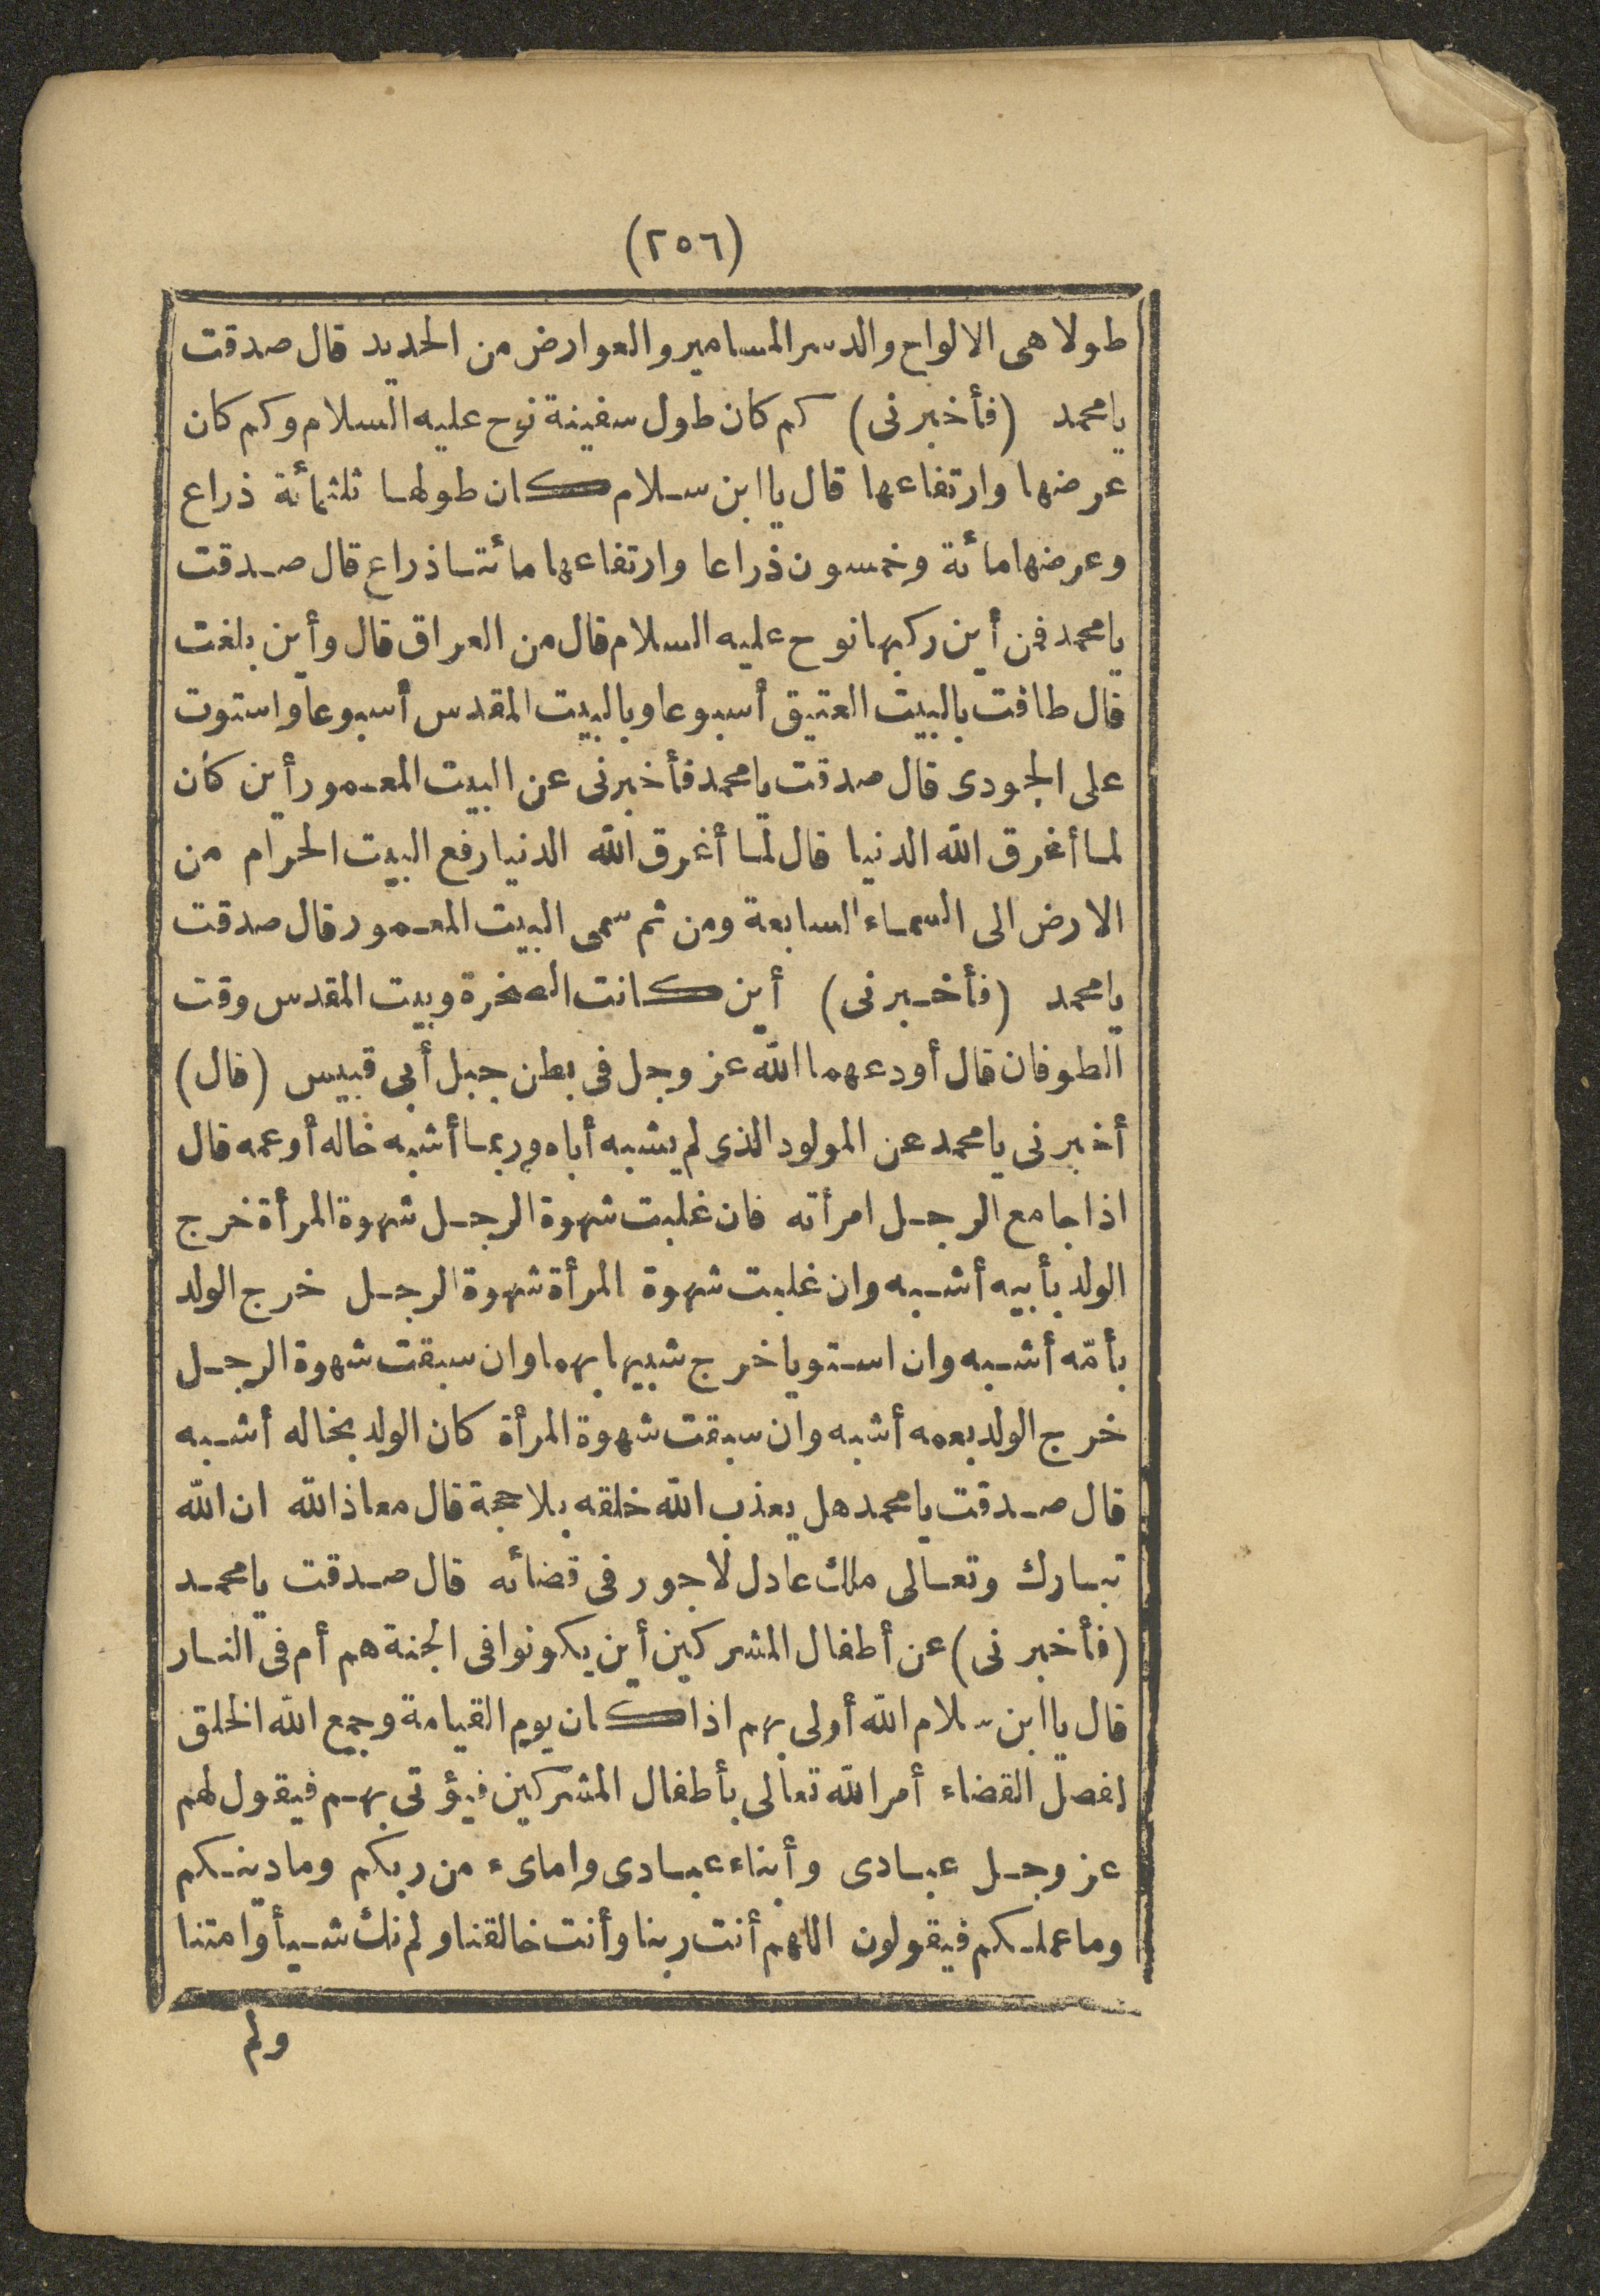 (٢٥٦)
طولا هى الالواح والدسر المسامير والعوارض من الحديد قال صدقت
يامحمد (فأخبرنى) كم كان طول سفينة نوح عليه السلام وكم كان
عرضها وارتفاعها قال يا ابن سلام كان طولها ثلثمائة ذراع
وعرضها مائة وخمسون ذراعا وارتفاعها مائتا ذراع قال صدقت
يامحمد فمن أين ركبها نوح عليه السلام قال من العراق قال وأين بلغت
قال طافت بالبيت العتيق أسبوعا وبالبيت المقدس أسبوعا واستوت
على الجودى قال صدقت يامحمد فأخبرنى عن البيت المعمور أين كان
لما أغرق الله الدنيا قال لما أغرق الله الدنيا رفع البيت الحرام من
الارض الى السماء السابعة ومن ثم سمى البيت المعمور قال صدقت
يامحمد (فأخبرنى) أين كانت الصخرة وبيت المقدس وقت
الطوفان قال أودعهما الله عز وجل فى بطن جبل أبى قبيس (قال)
أخبرنى يامحمد عن المولود الذى لم يشبه أباه وربما أشبه خاله أوعمه قال
اذا جامع الرجل امرأته فان غلبت شهوة الرجل شهوة المرأة خرج
الولد بأبيه أشبه وان غلبت شهوة المرأة شهوة الرجل خرج الولد
بأمّه أشبه وان استويا خرج شبيها بهما وان سبقت شهوة الرجل
خرج الولد بعمه أشبه وان سبقت شهوة المرأة كان الولد بخاله أشبه
قال صدقت يامحمد هل يعذب الله خلقه بلا حجة قال معاذ الله ان الله
تبارك وتعالى ملك عادل لاجور فى قضائه قال صدقت يامحمد
(فأخبرنى) عن أطفال المشركين أين يكونوا فى الجنة هم أم فى النار
قال يا ابن سلام الله أولى بهم اذا كان يوم القيامة وجمع الله الخلق
لفصل القضاء أمر الله تعالى بأطفال المشركين فيؤتى بهم فيقول لهم
عز وجل عبادى وأبناء عبادى وامائء من ربكم وما دينكم
وما عملكم فيقولون اللهم أنت ربنا وأنت خالقنا ولم نك شيأ وامتنا
ولم